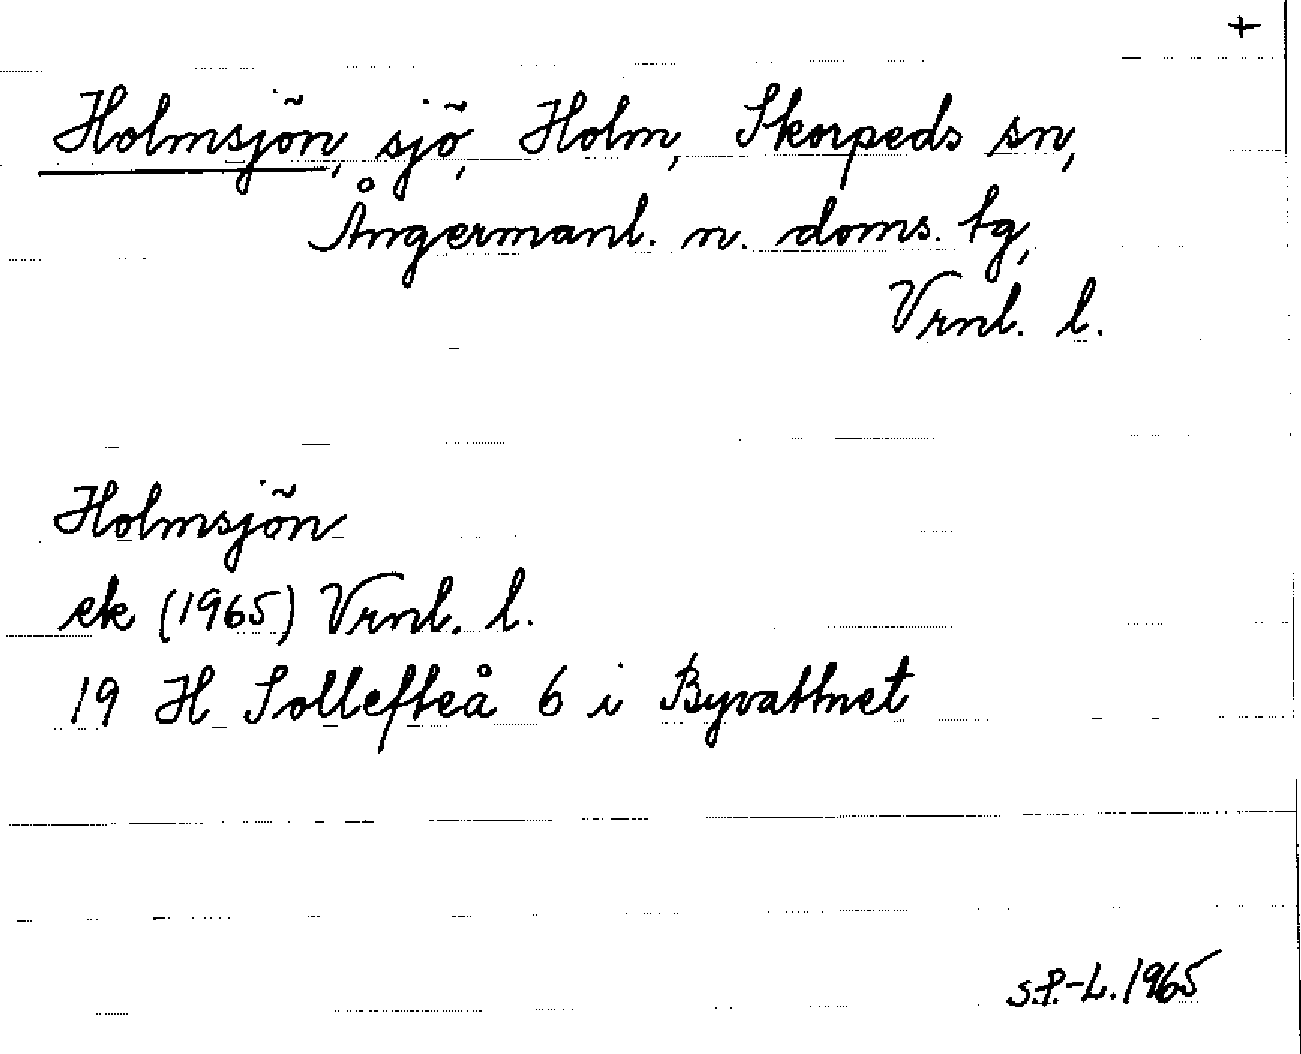 +
Holmsjön, sjö, Holm, Skorpeds sn,
Ångermanl. n. doms. tg,
Vrnl. l.
Holmsjön
ek (1965) Vrnl. l.
19 H Sollefteå 6 i Byvattnet
S.P.-L. 1965